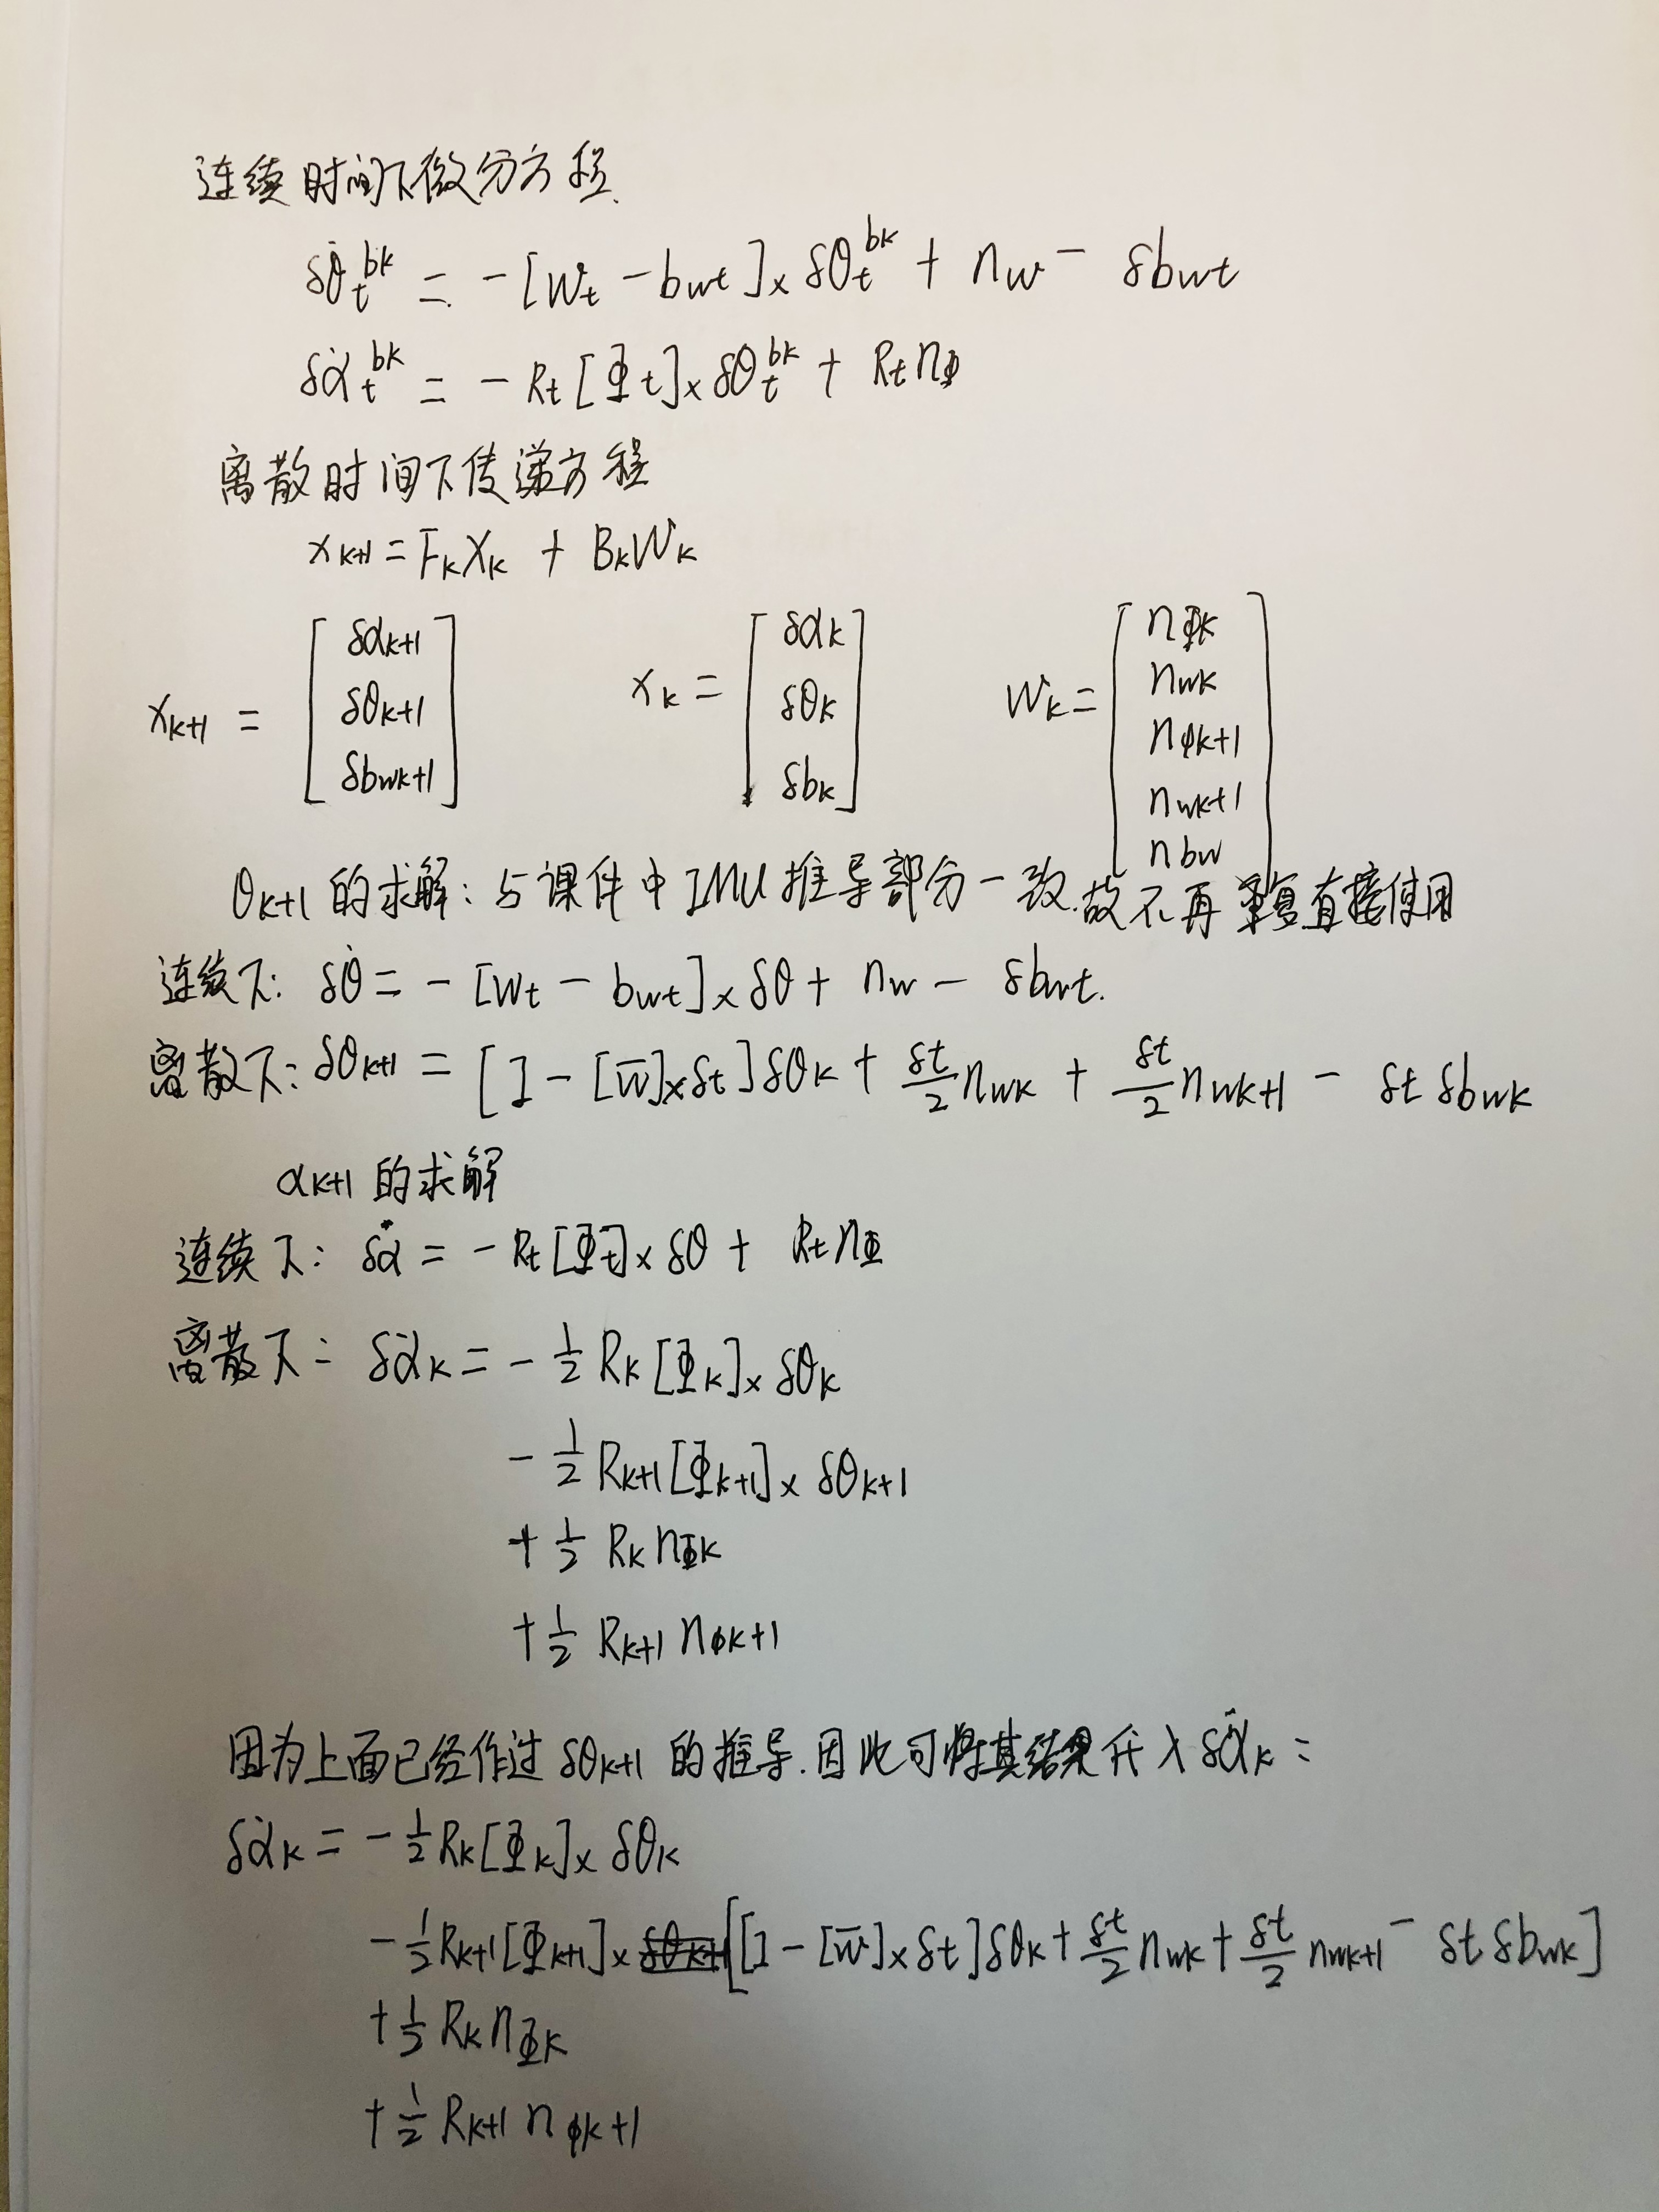 连续时间下微分方程.
δθ̇_t^{bk} = -[w_t - b_{wt}]_× δθ_t^{bk} + n_w - δb_{wt}
δα̇_t^{bk} = -R_t[Φ_t]_× δθ_t^{bk} + R_t n_Φ
离散时间下传递方程
x_{k+1} = F_k X_k + B_k W_k
x_{k+1} = [δα_{k+1} δθ_{k+1} δb_{wk+1}] x_k = [δα_k δθ_k δb_k] W_k = [n_{Φk} n_{wk} n_{ϕk+1} n_{wk+1} n_{bw}]
θ_{k+1} 的求解: 与课件中IMU推导部分一致.故不再重复直接使用
连续下: δθ̇ = -[w_t - b_{wt}]_× δθ + n_w - δb_{wt}.
离散下: δθ_{k+1} = [I - [w̄]_× δt]δθ_k + δt/2 n_{wk} + δt/2 n_{wk+1} - δt δb_{wk}
α_{k+1} 的求解
连续下: δα̇ = -R_t[Φ_t]_× δθ + R_t n_Φ
离散下: δα̇_k = -1/2 R_k[Φ_k]_× δθ_k
-1/2 R_{k+1}[Φ_{k+1}]_× δθ_{k+1}
+1/2 R_k n_{Φk}
+1/2 R_{k+1} n_{ϕk+1}
因为上面已经作过 δθ_{k+1} 的推导.因此可将其结果代入 δα̇_k:
δα̇_k = -1/2 R_k[Φ_k]_× δθ_k
-1/2 R_{k+1}[Φ_{k+1}]_× [[I - [w̄]_× δt]δθ_k + δt/2 n_{wk} + δt/2 n_{wk+1} - δt δb_{wk}]
+1/2 R_k n_{Φk}
+1/2 R_{k+1} n_{ϕk+1}